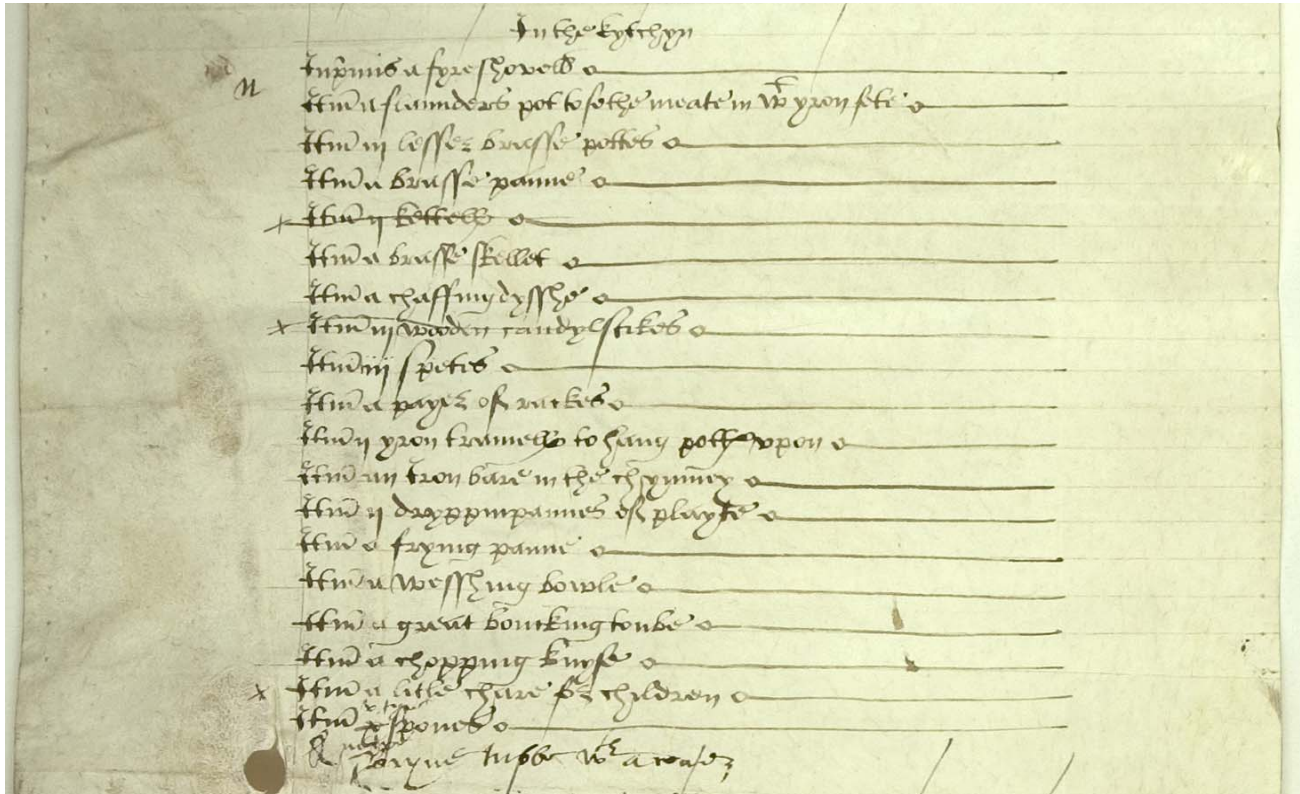 In the kytchyn
Inp̄mis a fyreshovell
Itm̄ a flaunders pot to sethe meate in wt yron fete
Itm̄ iij lesser brasse pottes
Itm̄ a brasse panne
Itm̄ ij kettells
Itm̄ a brasse skellet
Itm̄ a chaffing dysshe
Itm̄ iij wooden candylstikes
Itm̄ iij spetes
Itm̄ a payer of rackes
Itm̄ ij yron tramells to hang potts vpon
Itm̄ an Iron barre in the chymney
Itm̄ ij dryppinpannes of playte
Itm̄ a frying panne
Itm̄ a wesshing bowle
Itm̄ a great boucking toube
Itm̄ a chopping knyfe
Itm̄ a litle chare for children
Itm̄ x spones
tubbe wt a cover